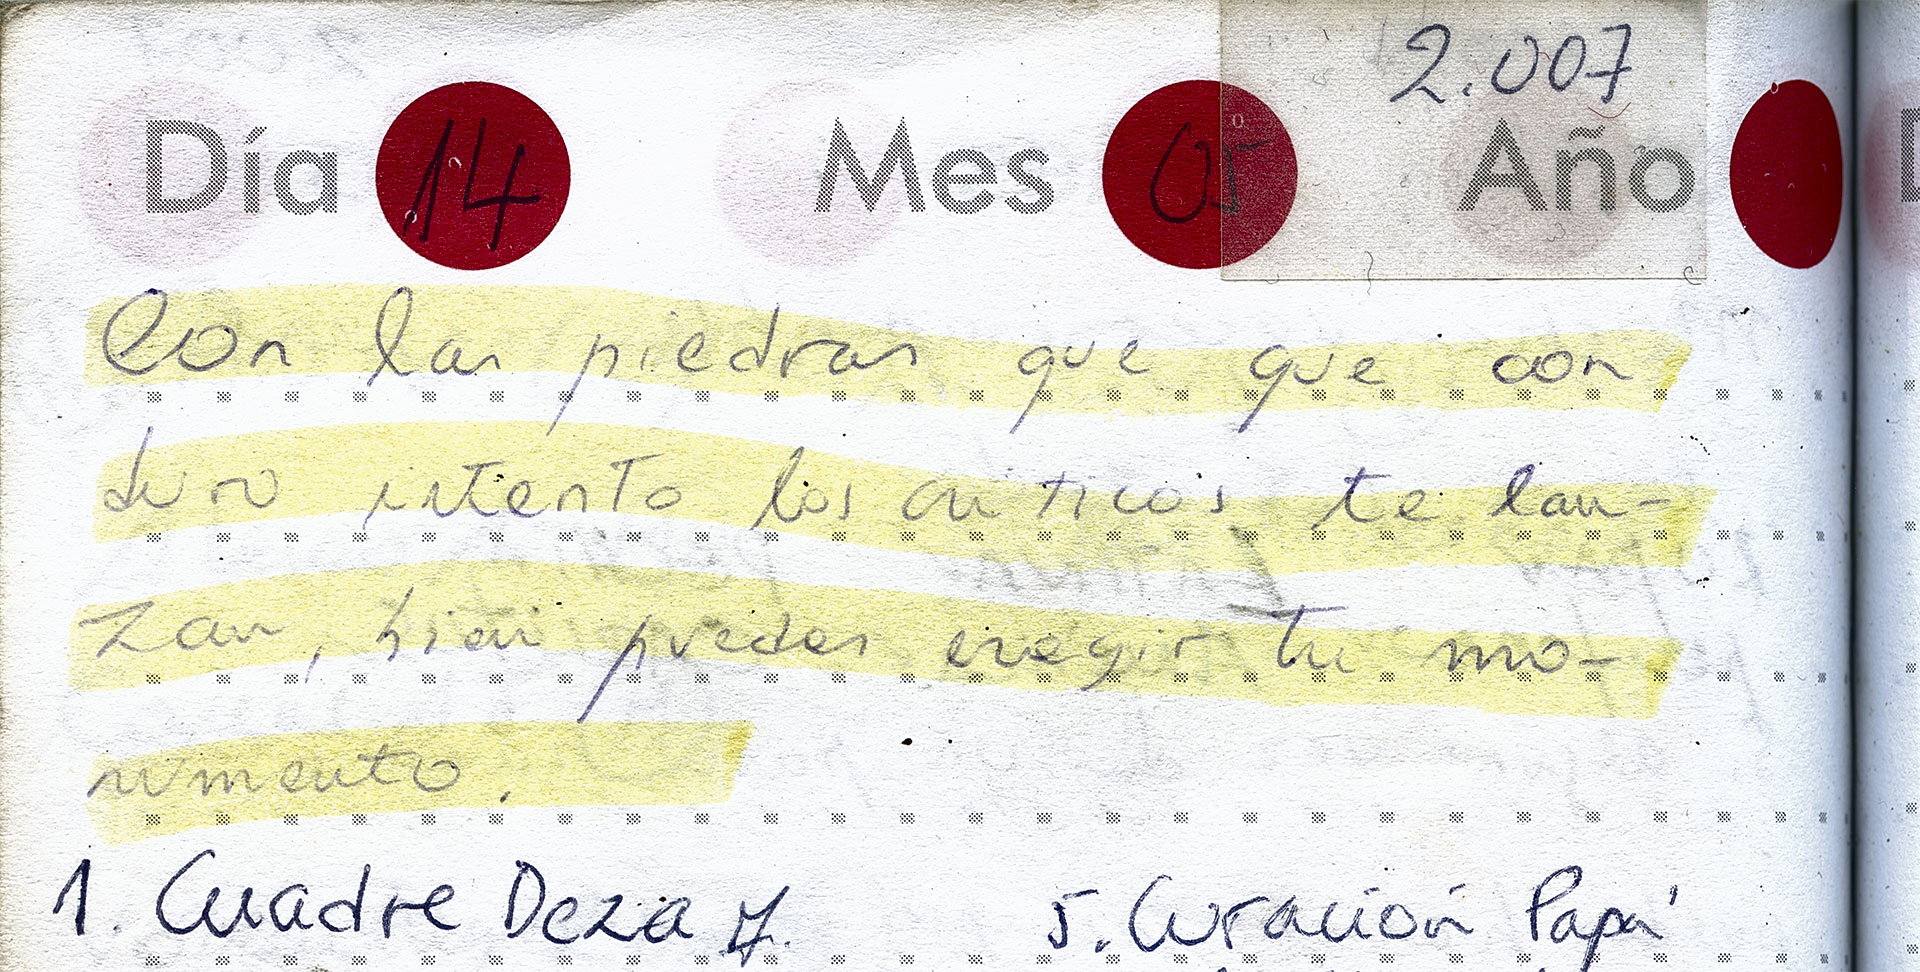 2.007
Día 14 Mes 05 Año
Con las piedras que que con
duro intento los criticos te lan-
zan, bien puedes eregir tu mo-
numento.
1. Cuadre Deza 7. 5. Curación Papá